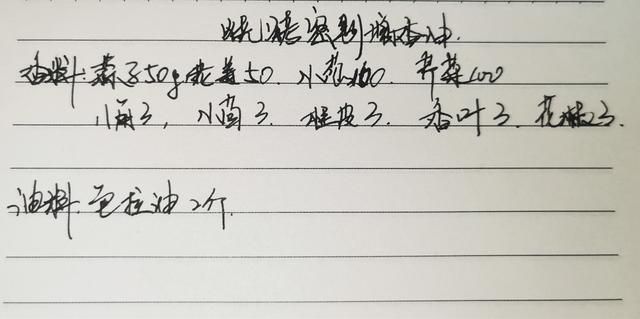 烧烤密制增香油.
香料:蒜子50g 老姜50. 小葱100. 芹菜100
八角3, 小茴3. 桂皮3. 香叶3. 花椒23.
油料.色拉油2斤.